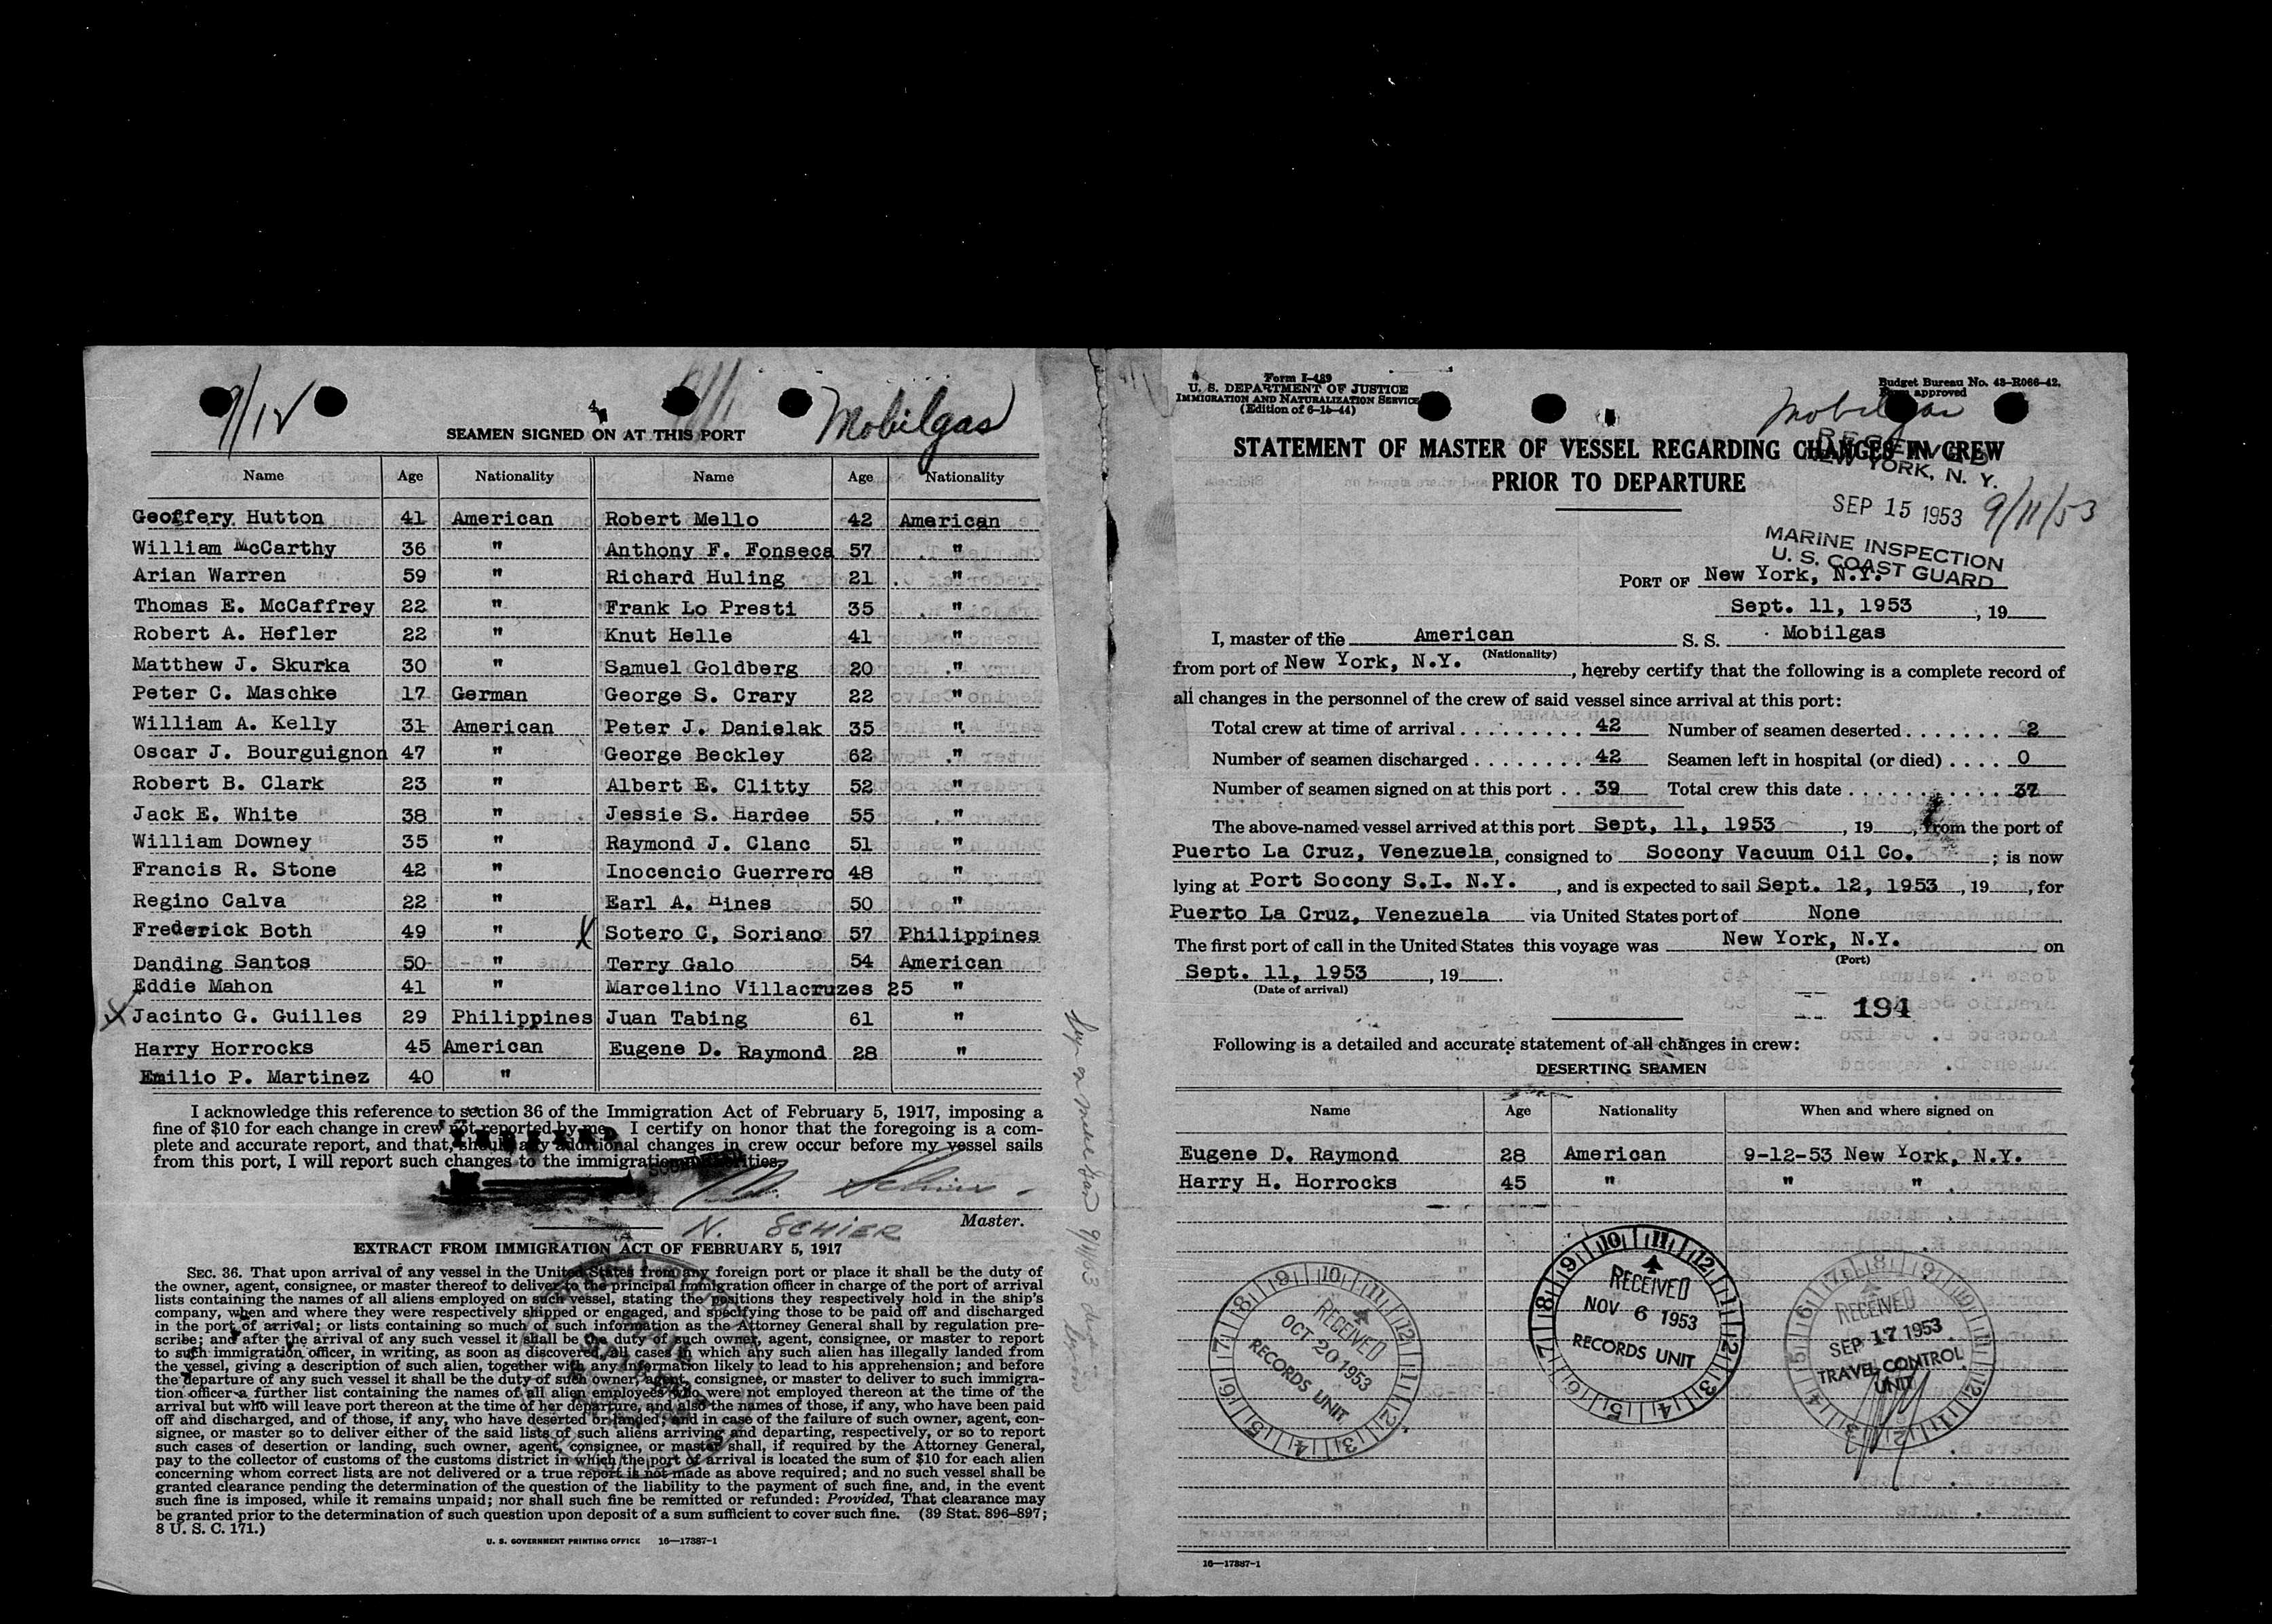 9/12
4
Mobilgas
SEAMEN SIGNED ON AT THIS PORT
Name Age Nationality Name Age Nationality
Geoffery Hutton 41 American Robert Mello 42 American
William McCarthy 36 " Anthony F. Fonseca 57 "
Arian Warren 59 " Richard Huling 21 "
Thomas E. McCaffrey 22 " Frank Lo Presti 35 "
Robert A. Hefler 22 " Knut Helle 41 "
Matthew J. Skurka 30 " Samuel Goldberg 20 "
Peter C. Maschke 17 German George S. Crary 22 "
William A. Kelly 31 American Peter J. Danielak 35 "
Oscar J. Bourguignon 47 " George Beckley 62 "
Robert B. Clark 23 " Albert E. Clitty 52 "
Jack E. White 38 " Jessie S. Hardee 55 "
William Downey 35 " Raymond J. Clanc 51 "
Francis R. Stone 42 " Inocencio Guerrero 48 "
Regino Calva 22 " Earl A. Hines 50 "
Frederick Both 49 " X Sotero C, Soriano 57 Philippines
Danding Santos 50 " Terry Galo 54 American
Eddie Mahon 41 " Marcelino Villacruzes 25 "
X Jacinto G. Guilles 29 Philippines Juan Tabing 61 "
Harry Horrocks 45 American Eugene D. Raymond 28 "
Emilio P. Martinez 40 "
I acknowledge this reference to section 36 of the Immigration Act of February 5, 1917, imposing a
fine of $10 for each change in crew not reported by me. I certify on honor that the foregoing is a com-
plete and accurate report, and that, should any additional changes in crew occur before my vessel sails
from this port, I will report such changes to the immigration authorities.
N. SCHIER Master.
EXTRACT FROM IMMIGRATION ACT OF FEBRUARY 5, 1917
SEC. 36. That upon arrival of any vessel in the United States from any foreign port or place it shall be the duty of
the owner, agent, consignee, or master thereof to deliver to the principal immigration officer in charge of the port of arrival
lists containing the names of all aliens employed on such vessel, stating the positions they respectively hold in the ship's
company, when and where they were respectively shipped or engaged, and specifying those to be paid off and discharged
in the port of arrival; or lists containing so much of such information as the Attorney General shall by regulation pre-
scribe; and after the arrival of any such vessel it shall be the duty of such owner, agent, consignee, or master to report
to such immigration officer, in writing, as soon as discovered, all cases in which any such alien has illegally landed from
the vessel, giving a description of such alien, together with any information likely to lead to his apprehension; and before
the departure of any such vessel it shall be the duty of such owner, agent, consignee, or master to deliver to such immigra-
tion officer a further list containing the names of all alien employees who were not employed thereon at the time of the
arrival but who will leave port thereon at the time of her departure, and also the names of those, if any, who have been paid
off and discharged, and of those, if any, who have deserted or landed; and in case of the failure of such owner, agent, con-
signee, or master so to deliver either of the said lists of such aliens arriving and departing, respectively, or so to report
such cases of desertion or landing, such owner, agent, consignee, or master shall, if required by the Attorney General,
pay to the collector of customs of the customs district in which the port of arrival is located the sum of $10 for each alien
concerning whom correct lists are not delivered or a true report is not made as above required; and no such vessel shall be
granted clearance pending the determination of the question of the liability to the payment of such fine, and, in the event
such fine is imposed, while it remains unpaid; nor shall such fine be remitted or refunded: Provided, That clearance may
be granted prior to the determination of such question upon deposit of a sum sufficient to cover such fine. (39 Stat. 896-897;
8 U. S. C. 171.)
U. S. GOVERNMENT PRINTING OFFICE 16—17387-1
Form I-489
U. S. DEPARTMENT OF JUSTICE
IMMIGRATION AND NATURALIZATION SERVICE
(Edition of 6-15-44)
Budget Bureau No. 43-R066-42.
approved
Mobilgas
STATEMENT OF MASTER OF VESSEL REGARDING CHANGES IN CREW
PRIOR TO DEPARTURE
RECEIVED
NEW YORK, N. Y.
SEP 15 1953
9/11/53
MARINE INSPECTION
U. S. COAST GUARD
PORT OF New York, N.Y.
Sept. 11, 1953, 19
I, master of the American S. S. Mobilgas
(Nationality)
from port of New York, N.Y., hereby certify that the following is a complete record of
all changes in the personnel of the crew of said vessel since arrival at this port:
Total crew at time of arrival 42 Number of seamen deserted 2
Number of seamen discharged 42 Seamen left in hospital (or died) 0
Number of seamen signed on at this port 39 Total crew this date 37
The above-named vessel arrived at this port Sept, 11, 1953, 19, from the port of
Puerto La Cruz, Venezuela, consigned to Socony Vacuum Oil Co. ; is now
lying at Port Socony S.I. N.Y., and is expected to sail Sept. 12, 1953, 19, for
Puerto La Cruz, Venezuela via United States port of None
The first port of call in the United States this voyage was New York, N.Y. on
(Port)
Sept. 11, 1953, 19.
(Date of arrival)
194
Following is a detailed and accurate statement of all changes in crew:
DESERTING SEAMEN
Name Age Nationality When and where signed on
Eugene D. Raymond 28 American 9-12-53 New York, N.Y.
Harry H. Horrocks 45 " " "
RECEIVED
OCT 20 1953
RECORDS UNIT
RECEIVED
NOV 6 1953
RECORDS UNIT
RECEIVED
SEP 17 1953
TRAVEL CONTROL
UNIT
16—17387-1